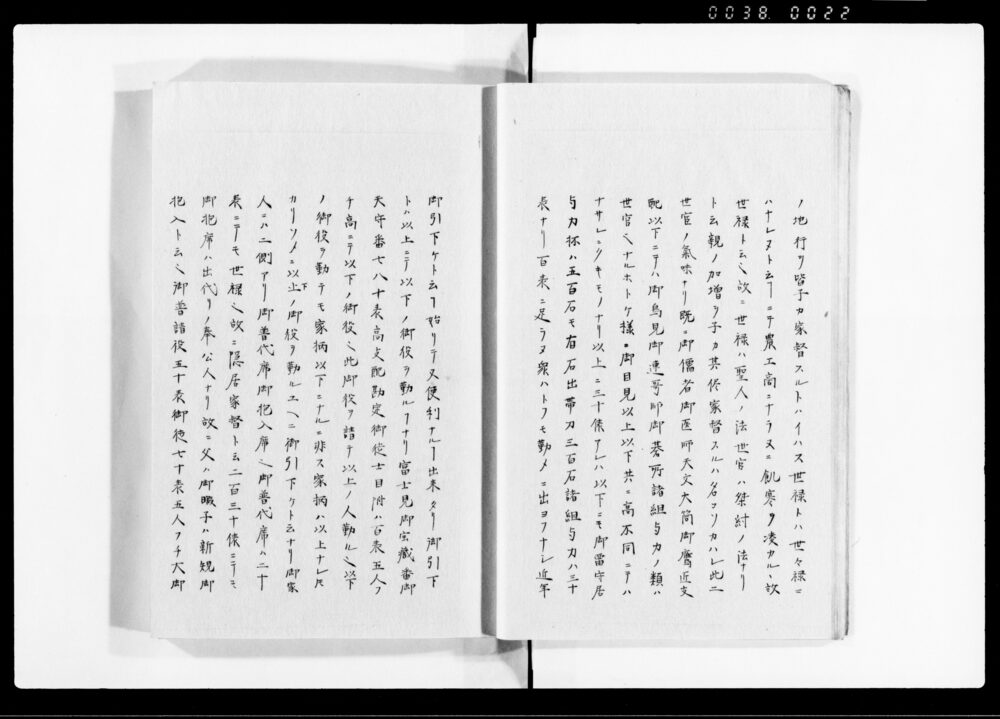 0038 0022
ノ地行ヲ皆子カ家督スルトハイハス世禄トハ世々禄ニ
ハナレヌト云フニテ農工商ニナラヌニ飢寒ヲ凌カルヽ故
世禄ト云之故ニ世禄ハ聖人ノ法世官ハ桀紂ノ法ナリ
ト云親ノ加増ヲ子カ其侭家督スルハ名コソカハレ此二
世官ノ氣味ナリ既ニ御儒者御医師天文大筒御鷹匠支
配以下ニテハ御鳥見御連哥師御墓所諸組与力ノ類ハ
世官之ナルホトケ様ニ御目見以上以下共ニ高不同ニテハ
ナサレニクキモノナリ以上ニ三十俵アレハ以下ニモ御留守居
与力杯ハ五百石モ有石出帯刀三百石諸組与力ハ三十
表ナリ百表ニ足ラヌ衆ハトフモ勤メニ出ヨフナシ近年
御引下ケト云フ始リテ又便利ナルフ出来タリ御引下
トハ以上ニテ以下ノ御役ヲ勤ルフナリ富士見御宝蔵番御
天守番七八十表高支配勘定御徒士目附ハ百表五人フ
チ高ニテ以下ノ御役之此御役ヲ請テ以上ノ人勤ル之以下
ノ御役ヲ勤テモ家柄以下ニナルニ非ス家柄ハ以上ナレ𪜈
カリソメニ以上ノ下御役ヲ勤ルユヘニ御引下ケト云ナリ御家
人ニハ二側アリ御普代席御抱入席之御普代席ハ二十
表ニテモ世禄之故ニ隠居家督ト云二百三十俵ニテモ
御抱席ハ出代リノ奉公人ナリ故ニ父ハ御暇子ハ新規御
抱入ト云之御普請役五十表御徒七十表五人フチ大御